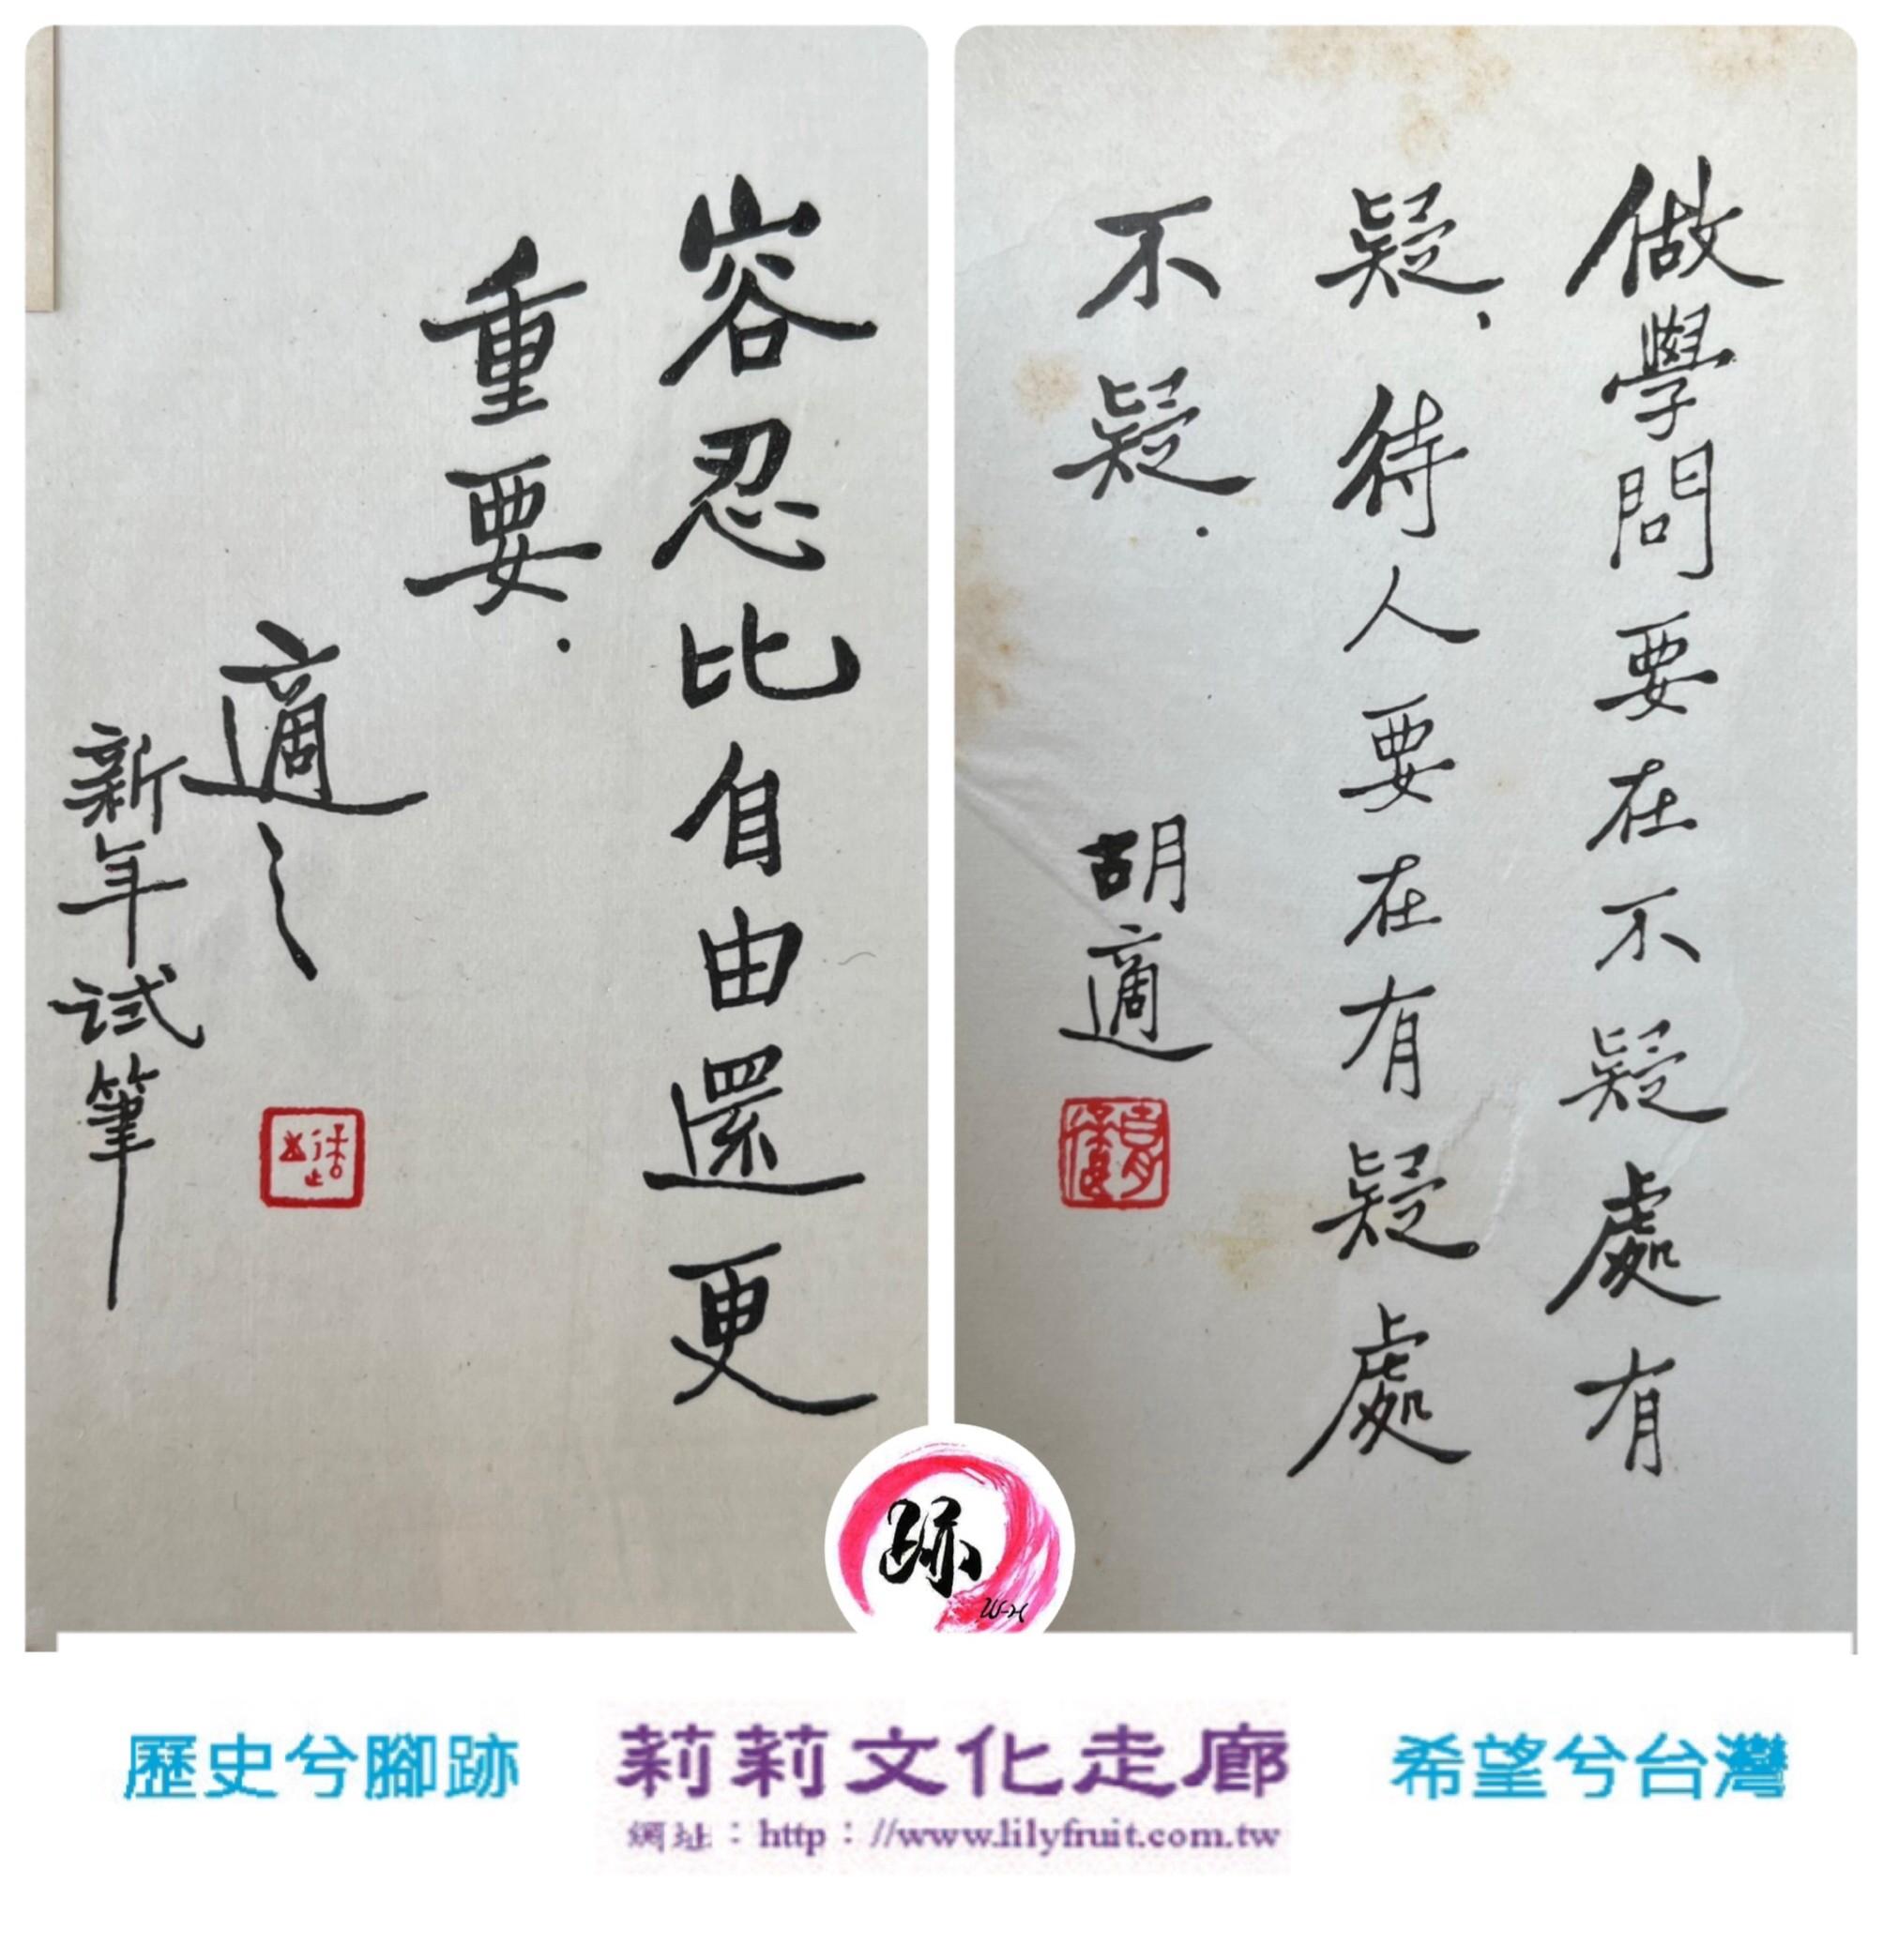 做學問要在不疑處有
疑、待人要在有疑處
不疑.
胡適
容忍比自由還更
重要.
適之
新年試筆
跡
W-H
歷史兮腳跡
莉莉文化走廊
網址：http：//www.lilyfruit.com.tw
希望兮台灣